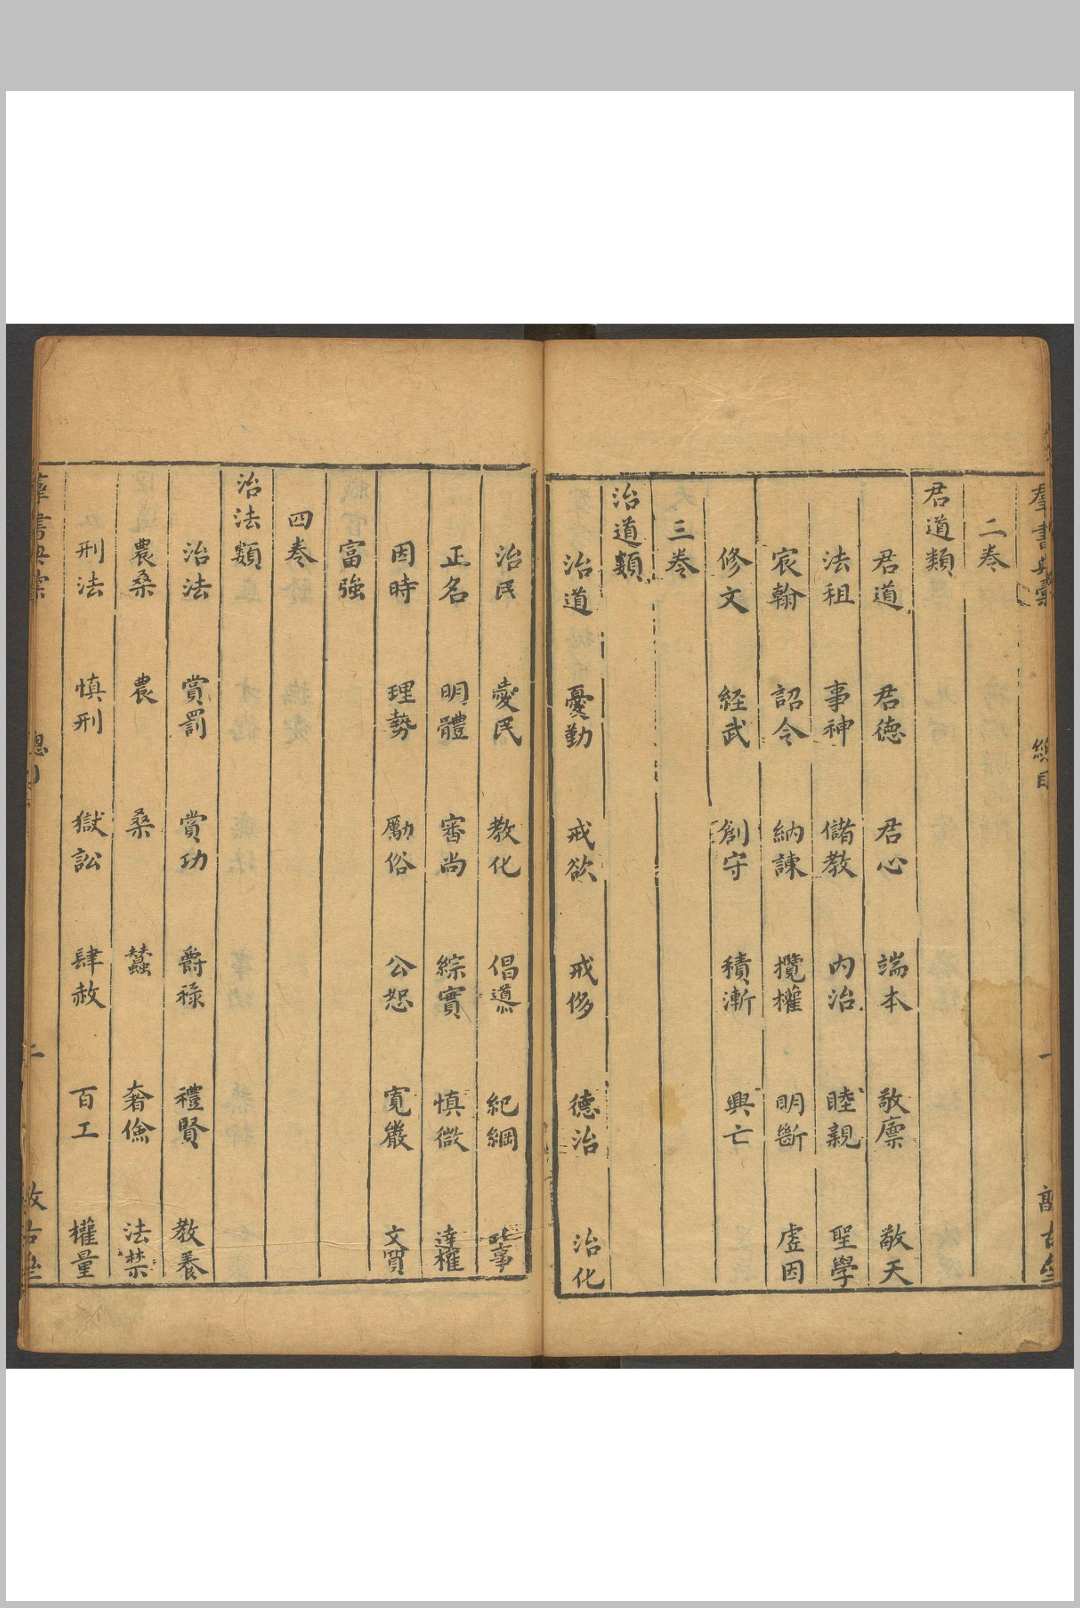 二卷
君道類
君道 君德 君心 端本 敬廪 敬天
法祖 事神 儲教 內治 睦親 聖學
宸翰 詔令 納諫 攬權 明斷 虛因
修文 経武 創守 積漸 興亡
三卷
治道類
治道 憂勤 戒欲 戒侈 德治 治化
治民 愛民 教化 倡導 紀綱
正名 明體 審尚 綜實 慎微 達權
因時 理勢 勵俗 公恕 寬嚴 文質
富強
四卷
治法類
治法 賞罰 賞功 爵祿 禮賢 教養
農桑 農 桑 蠶 奢儉 法禁
刑法 慎刑 獄訟 肆赦 百工 權量